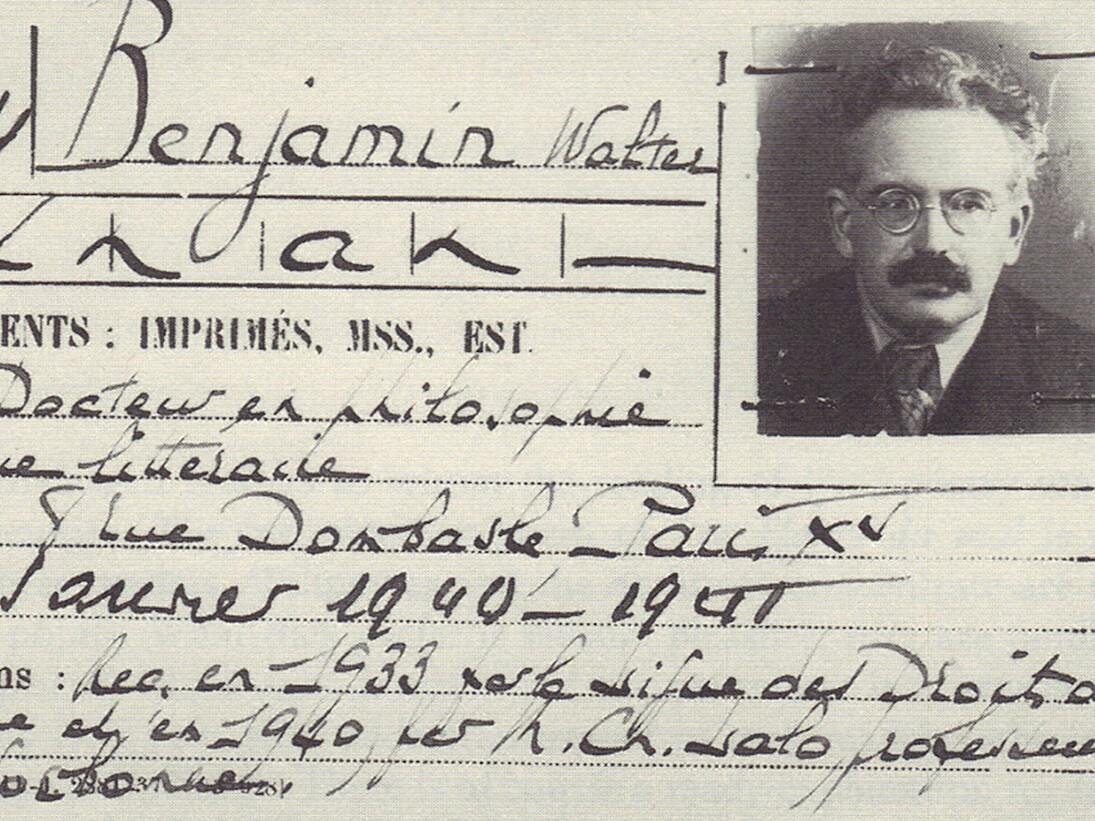 Benjamin Walter
ENTS : IMPRIMÉS, MSS., EST.
Docteur en philosophie
littéraire
rue Dombasle Paris XV
Janvier 1940 – 1941
ns : Rec. en 1933 par la Ligue des Droits
et en 1940 par M. Ch. Lalo professeur